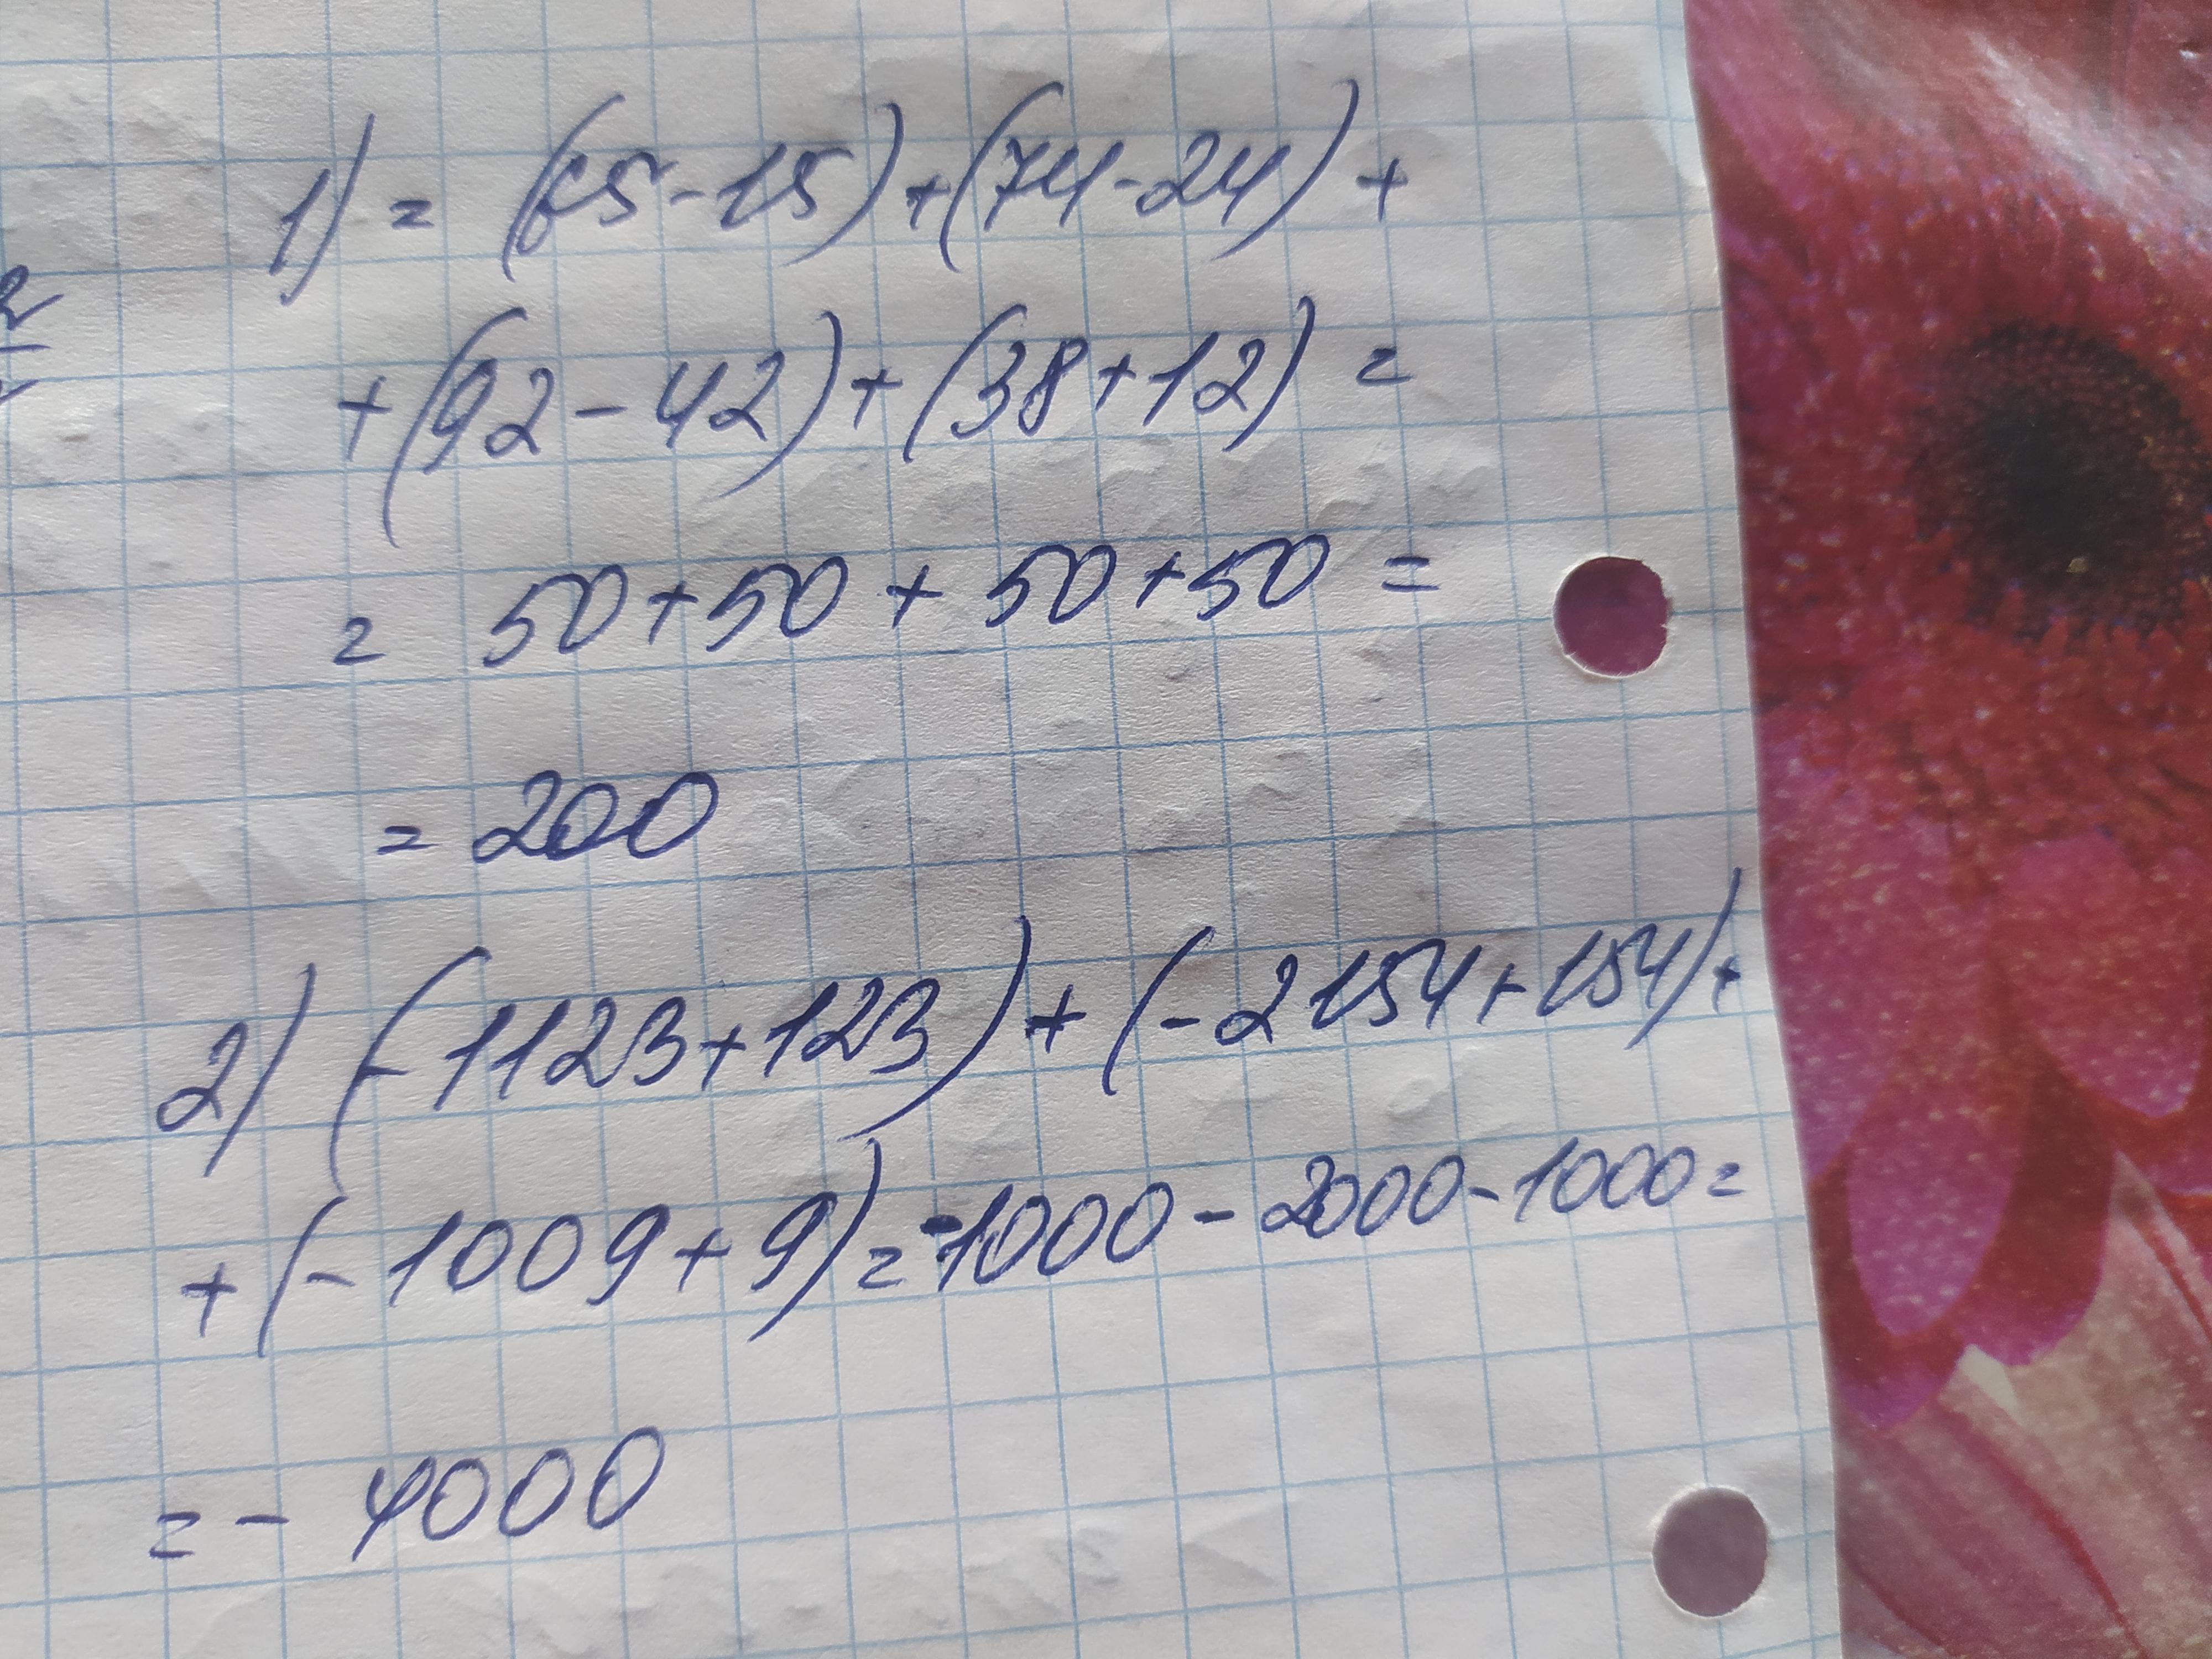 1) = (65-15)+(74-24)+
+(92-42)+(38+12)=
= 50+50+50+50=
= 200
2) (-1123+123)+(-2154+154)+
+(-1009+9)=-1000-2000-1000=
=-4000